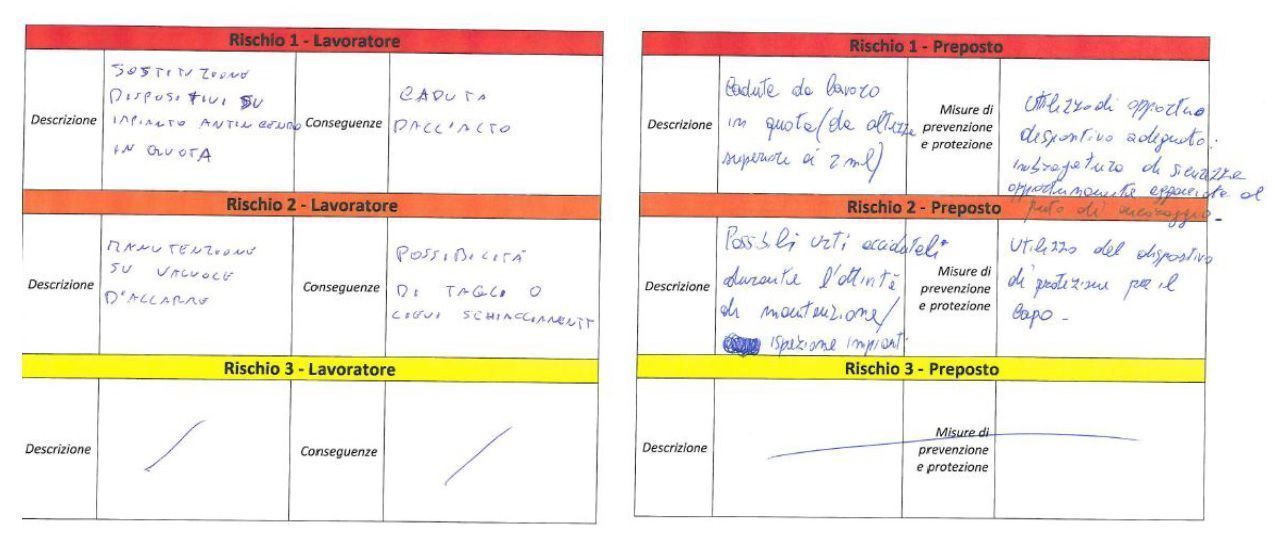 Rischio 1 - Lavoratore
Descrizione
SOSTITUZIONE
DISPOSITIVI SU
IMPIANTO ANTINCENDIO
IN QUOTA
Conseguenze
CADUTA
DALL'ALTO
Rischio 2 - Lavoratore
Descrizione
MANUTENZIONE
SU VALVOLE
D'ALLARME
Conseguenze
POSSIBILITÀ
DI TAGLI O
LIEVI SCHIACCIAMENTI
Rischio 3 - Lavoratore
Descrizione
Conseguenze
Rischio 1 - Preposto
Descrizione
Cadute da lavoro
in quota (da altezze
superiore ai 2 ml)
Misure di
prevenzione
e protezione
Utilizzo di opportuno
dispositivo adeguato:
imbragatura di sicurezza
opportunamente agganciata al
punto di ancoraggio.
Rischio 2 - Preposto
Descrizione
Possibili urti accidentali
durante l'attività
di manutenzione/
ispezione impianti
Misure di
prevenzione
e protezione
Utilizzo del dispositivo
di protezione per il
Capo -
Rischio 3 - Preposto
Descrizione
Misure di
prevenzione
e protezione